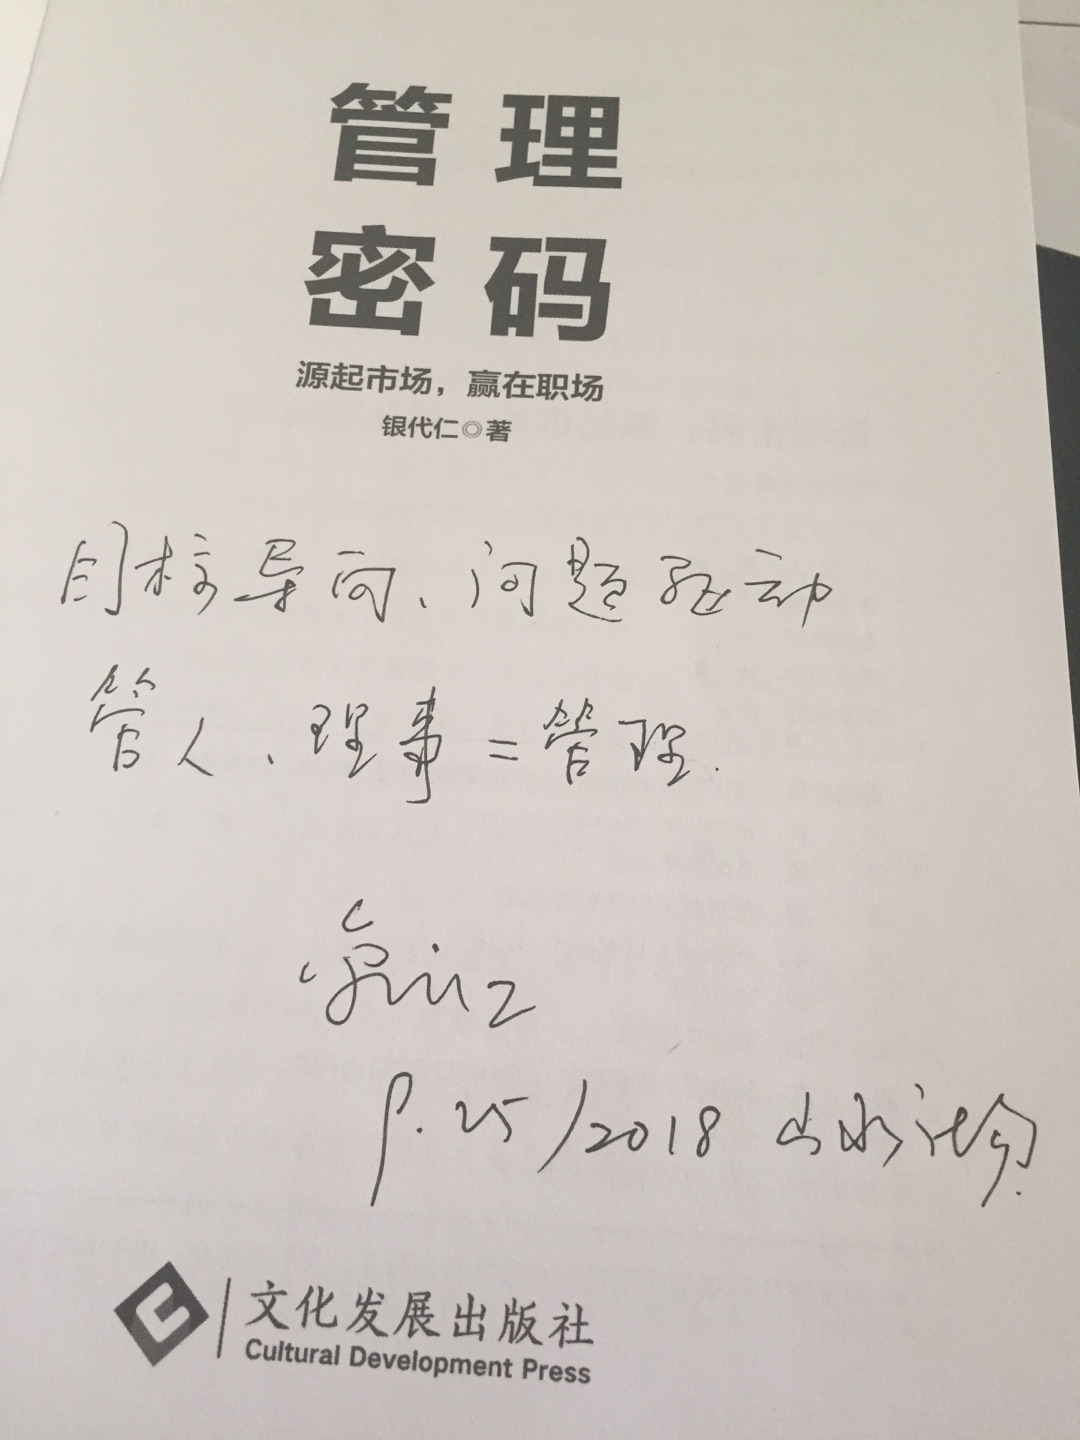 管理
密码
源起市场，赢在职场
银代仁◎著
目标导向、问题驱动
管人、理事=管理.
25/2018 山水
文化发展出版社
Cultural Development Press